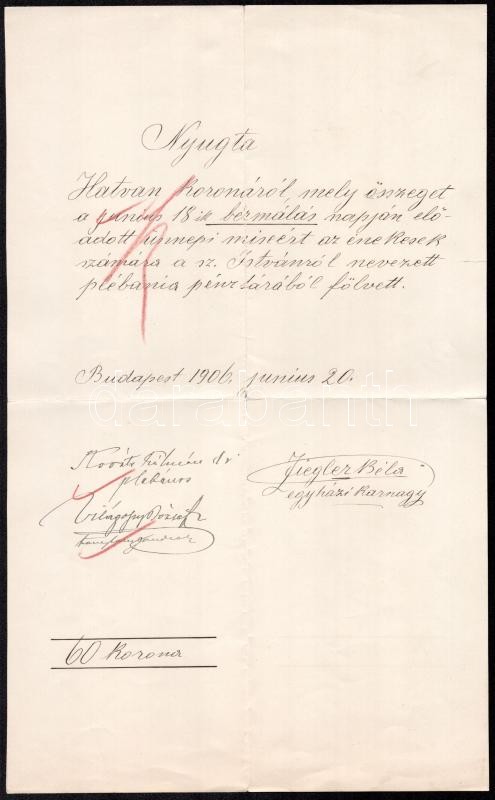 Nyugta
Hatvan koronáról mely öszeget
a junius 18 ik bérmálás napján elő-
adott ünnepi miséért az énekesek
számára a sz. Istvánról nevezett
plébánia pénztárából fölvett.
Budapest 1906. junius 20.
darabanth
Kováts Kálmán dr
plebános
Ziegler Béla
egyházi karnagy
60 korona